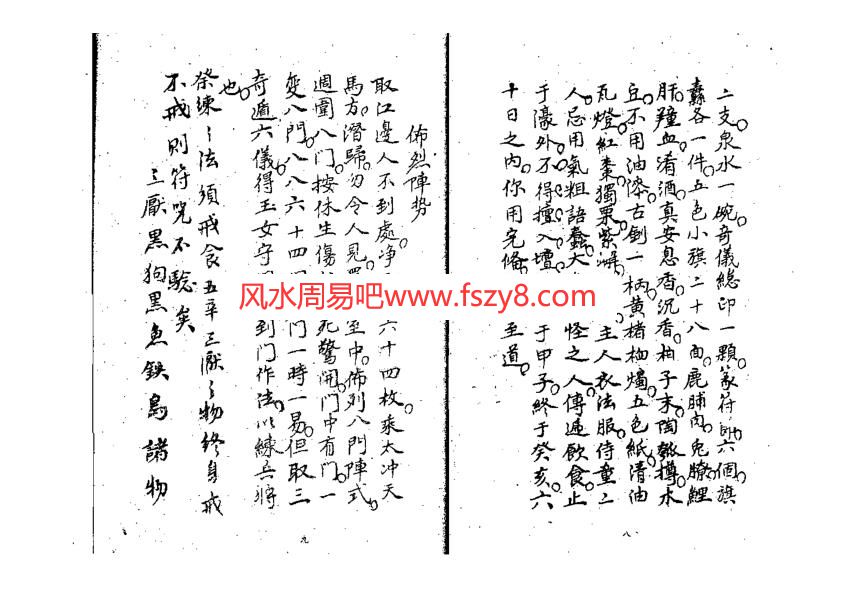 二支泉水一碗奇儀總印一顆篆符印六個旗
纛各一件五色小旗二十八面鹿脯肉兔膫鯉
肝羶血清酒真安息香沉香柏子末陶瓠樽水
豆不用油漆古劍一柄黃楮
燭五色紙清油
瓦燈紅棗獨栗紫
主人衣法服侍童二
人忌用氣粗語蠢大
怪之人傳遞飲食止
于濠外不得擅入壇
于甲子終于癸亥六
十日之内你用完備
至道
八
佈烈陣势
取江邊人不到處净
六十四枚乘太冲天
馬方潛歸勿令人見
至中佈列八門陣式
週圍八門按休生傷
死驚開門中有門一
變八門八八六十四
門一時一易但取三
奇遁六儀得玉女守
到门作法以練兵將
也
祭練之法須戒食五辛三厭之物終身戒
不戒則符咒不驗矣
三厭黑狗黑魚鉄鳥諸物
九
风水周易吧www.fszy8.com